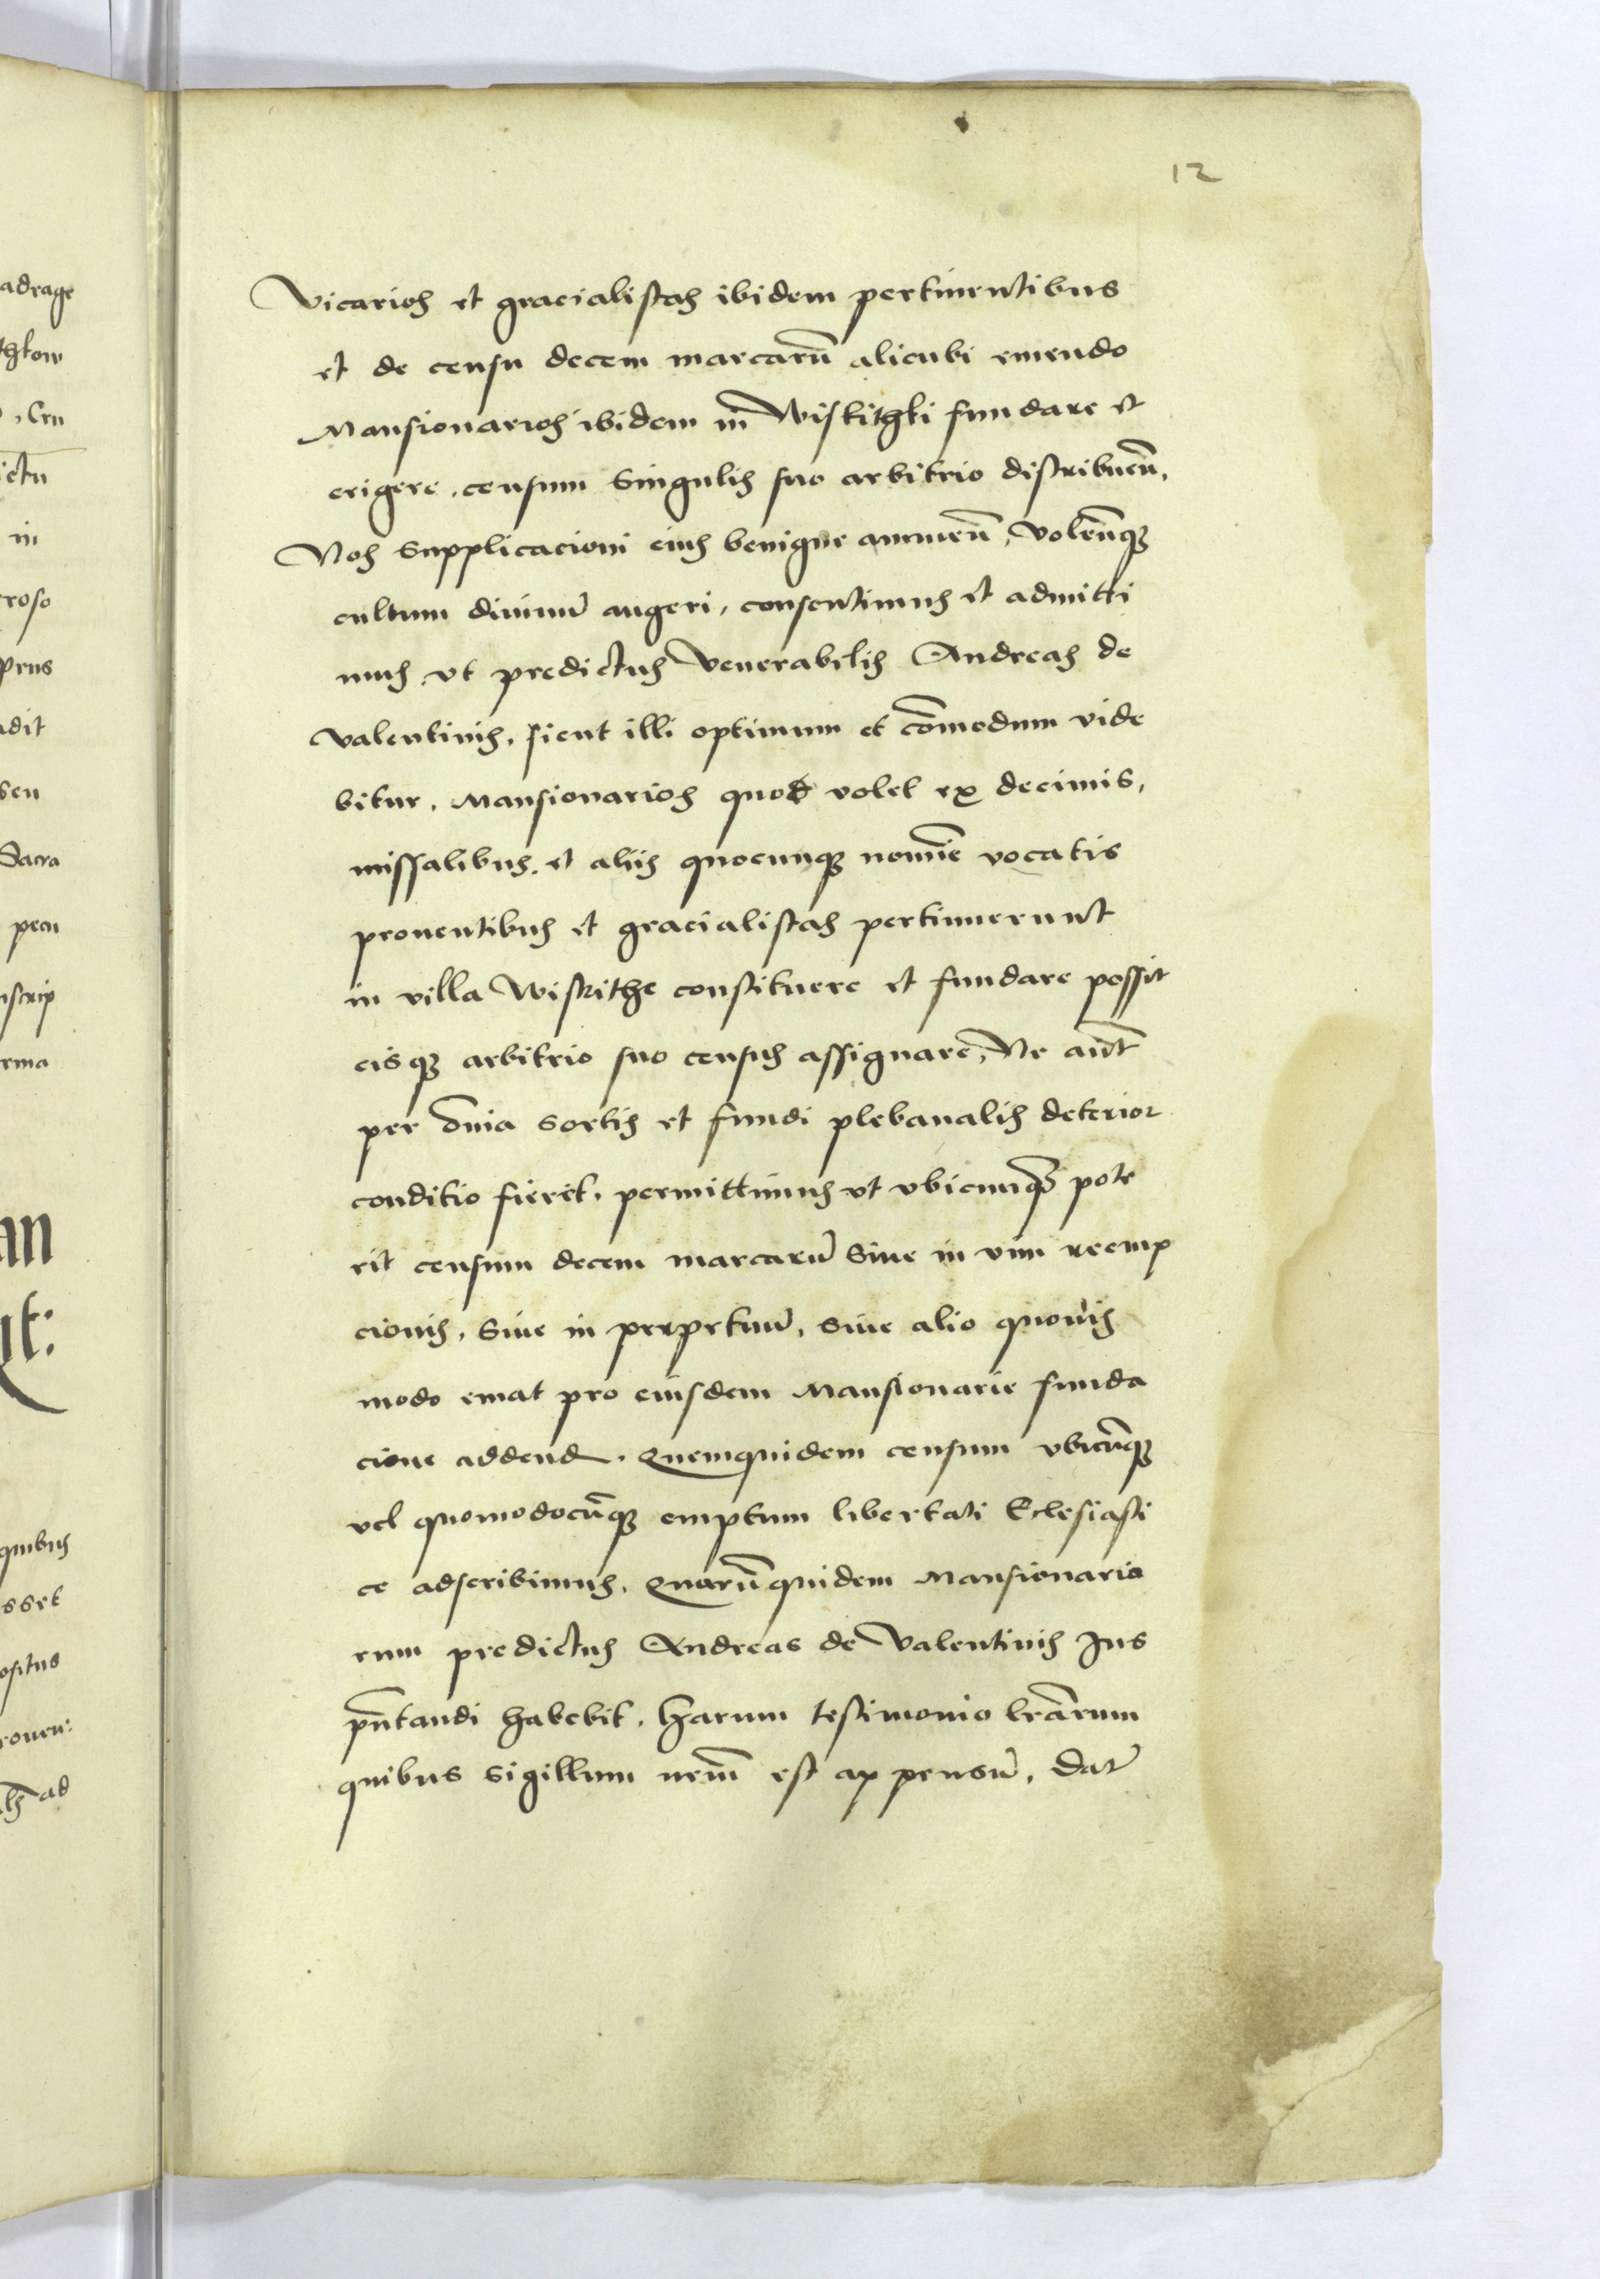 12
Vicarios et gracialistas ibidem pertinentibus
et de censu decem marcarū alicubi emendo
Mansionarios ibidem in Wistithki fundare et
erigere, censum Singulis suo arbitrio distribuēn̄,
Nos Supplicacioni eius benigne annuen̄, Volen̄tq3
cultum diuinū augeri, consentimus et admitti
mus vt predictus Venerabilis Andreas de
Valentinis, sicut illi optimum et cōmodum vide
bitur, Mansionarios quod volet ex decimis,
missalibus, et aliis quocunq3 nomīe vocatis
prouentibus et gracialistas pertinuerunt
in villa Wistithe constituere et fundare possit
eisq3 arbitrio suo census assignare, Ne aūt
per omia sortis et fundi plebanalis deterior
conditio fieret, permittimus vt vbicunq3 pote
rit censum decem marcarū Siue in vim reemp
cionis, Siue in perpetuū, Siue alio quouis
modo emat pro eiusdem Mansionarie funda
cione addend. Quemquidem censum vbicūq3
vel quomodocūq3 emptum libertati Eclesiasti
ce adscribimus, Quarūquidem Mansionario
rum predictus Andreas de Valentinis Jus
pn̄tandi habebit, Harum testimonio lrārum
quibus sigillum nrm̄ est appensū, Dat̄
adrage
in
roso
prus
adit
seu
Sacra
pecu
nscrip
rma
quibus
sset
ad